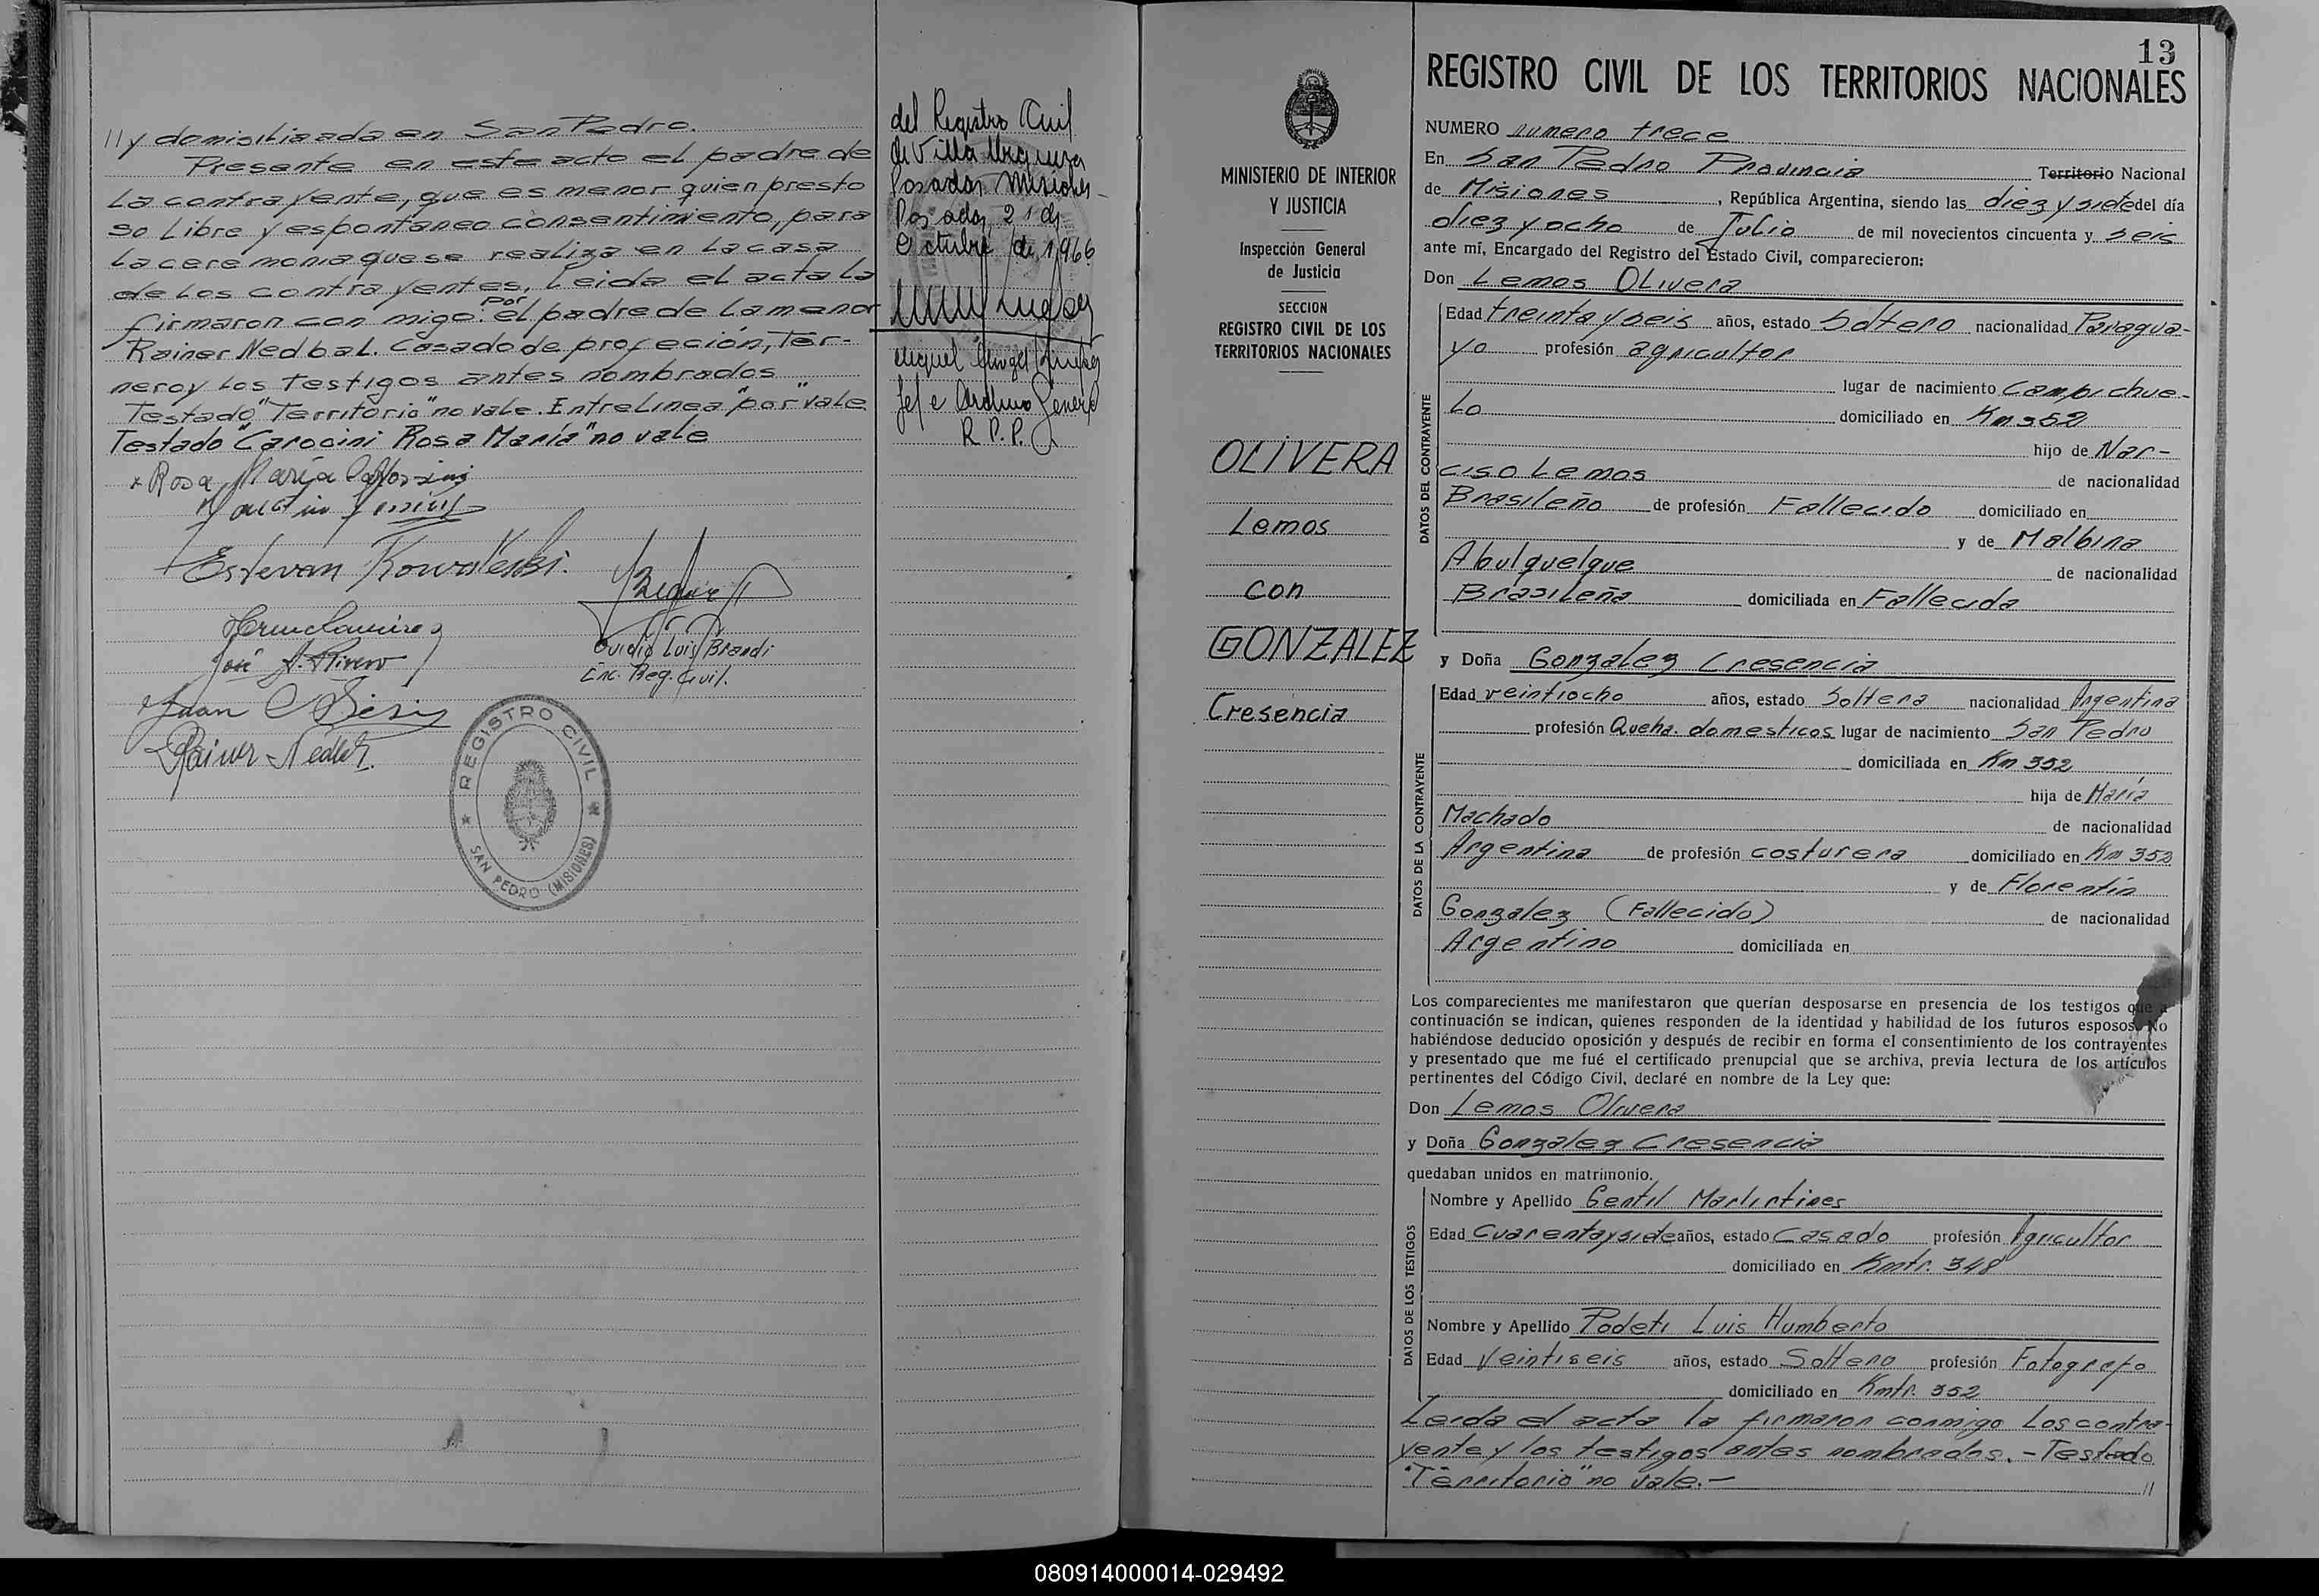 // y domisilizada en San Pedro.
Presente en este acto el padre de
La contrayente, que es menor quien presto
so Libre y espontaneo consentimiento, para
La ceremonia que se realiza en La casa
de Los contrayentes. Leida el acta La
firmaron con migo. por el padre de La menor
Rainer Nedbal. Casado de profeción, Tor-
nero y Los Testigos antes nombrados
Testado "Territorio" no vale. Entrelinea "por" vale.
Testado "Carocini Rosa María" no vale
x Rosa María
Estevan Kowaleski.
José A. Rivero
Ovidio Luis Brandi
Enc. Reg. Civil.
Juan
Rainer Nedbal
REGISTRO CIVIL
SAN PEDRO (MISIONES)
del Registro Civil
de Villa Urquiza
Posadas Misiones-
Posadas, 21 de
Octubre de 1966
Miguel Angel
Jefe Archivo General
R.P.P.
MINISTERIO DE INTERIOR
Y JUSTICIA
Inspección General
de Justicia
SECCION
REGISTRO CIVIL DE LOS
TERRITORIOS NACIONALES
OLIVERA
Lemos
con
GONZALEZ
Cresencia
13
REGISTRO CIVIL DE LOS TERRITORIOS NACIONALES
NUMERO numero trece
En San Pedro Provincia Territorio Nacional
de Misiones, República Argentina, siendo las diez y siete del día
diez y ocho de Julio de mil novecientos cincuenta y seis
ante mí, Encargado del Registro del Estado Civil, comparecieron:
Don Lemos Olivera
DATOS DEL CONTRAYENTE
Edad treinta y seis años, estado Soltero nacionalidad Paragua-
yo profesión agricultor
lugar de nacimiento Campichue-
Lo domiciliado en Km 352
hijo de Nar-
ciso Lemos de nacionalidad
Brasileño de profesión Fallecido domiciliado en
y de Malbina
Abulquelque de nacionalidad
Brasileña domiciliada en Fallecida
y Doña Gonzalez Cresencia
DATOS DE LA CONTRAYENTE
Edad veintiocho años, estado Soltera nacionalidad Argentina
profesión Queha. domesticos lugar de nacimiento San Pedro
domiciliada en Km 352
hija de María
Machado de nacionalidad
Argentina de profesión costurera domiciliado en Km 352
y de Florentín
Gonzalez (Fallecido) de nacionalidad
Argentino domiciliada en
Los comparecientes me manifestaron que querían desposarse en presencia de los testigos que a
continuación se indican, quienes responden de la identidad y habilidad de los futuros esposos. No
habiéndose deducido oposición y después de recibir en forma el consentimiento de los contrayentes
y presentado que me fué el certificado prenupcial que se archiva, previa lectura de los artículos
pertinentes del Código Civil, declaré en nombre de la Ley que:
Don Lemos Olivera
y Doña Gonzalez Cresencia
quedaban unidos en matrimonio.
DATOS DE LOS TESTIGOS
Nombre y Apellido Gentil
Edad Cuarenta y siete años, estado Casado profesión Agricultor
domiciliado en Kmtr. 348
Nombre y Apellido Podeti Luis Humberto
Edad Veintiseis años, estado Soltero profesión Fotografo
domiciliado en Kmtr. 352
Leida el acta la firmaron conmigo Los contra-
yente y los testigos antes nombrados. - Testado
"Territorio" no vale. - //
080914000014-029492